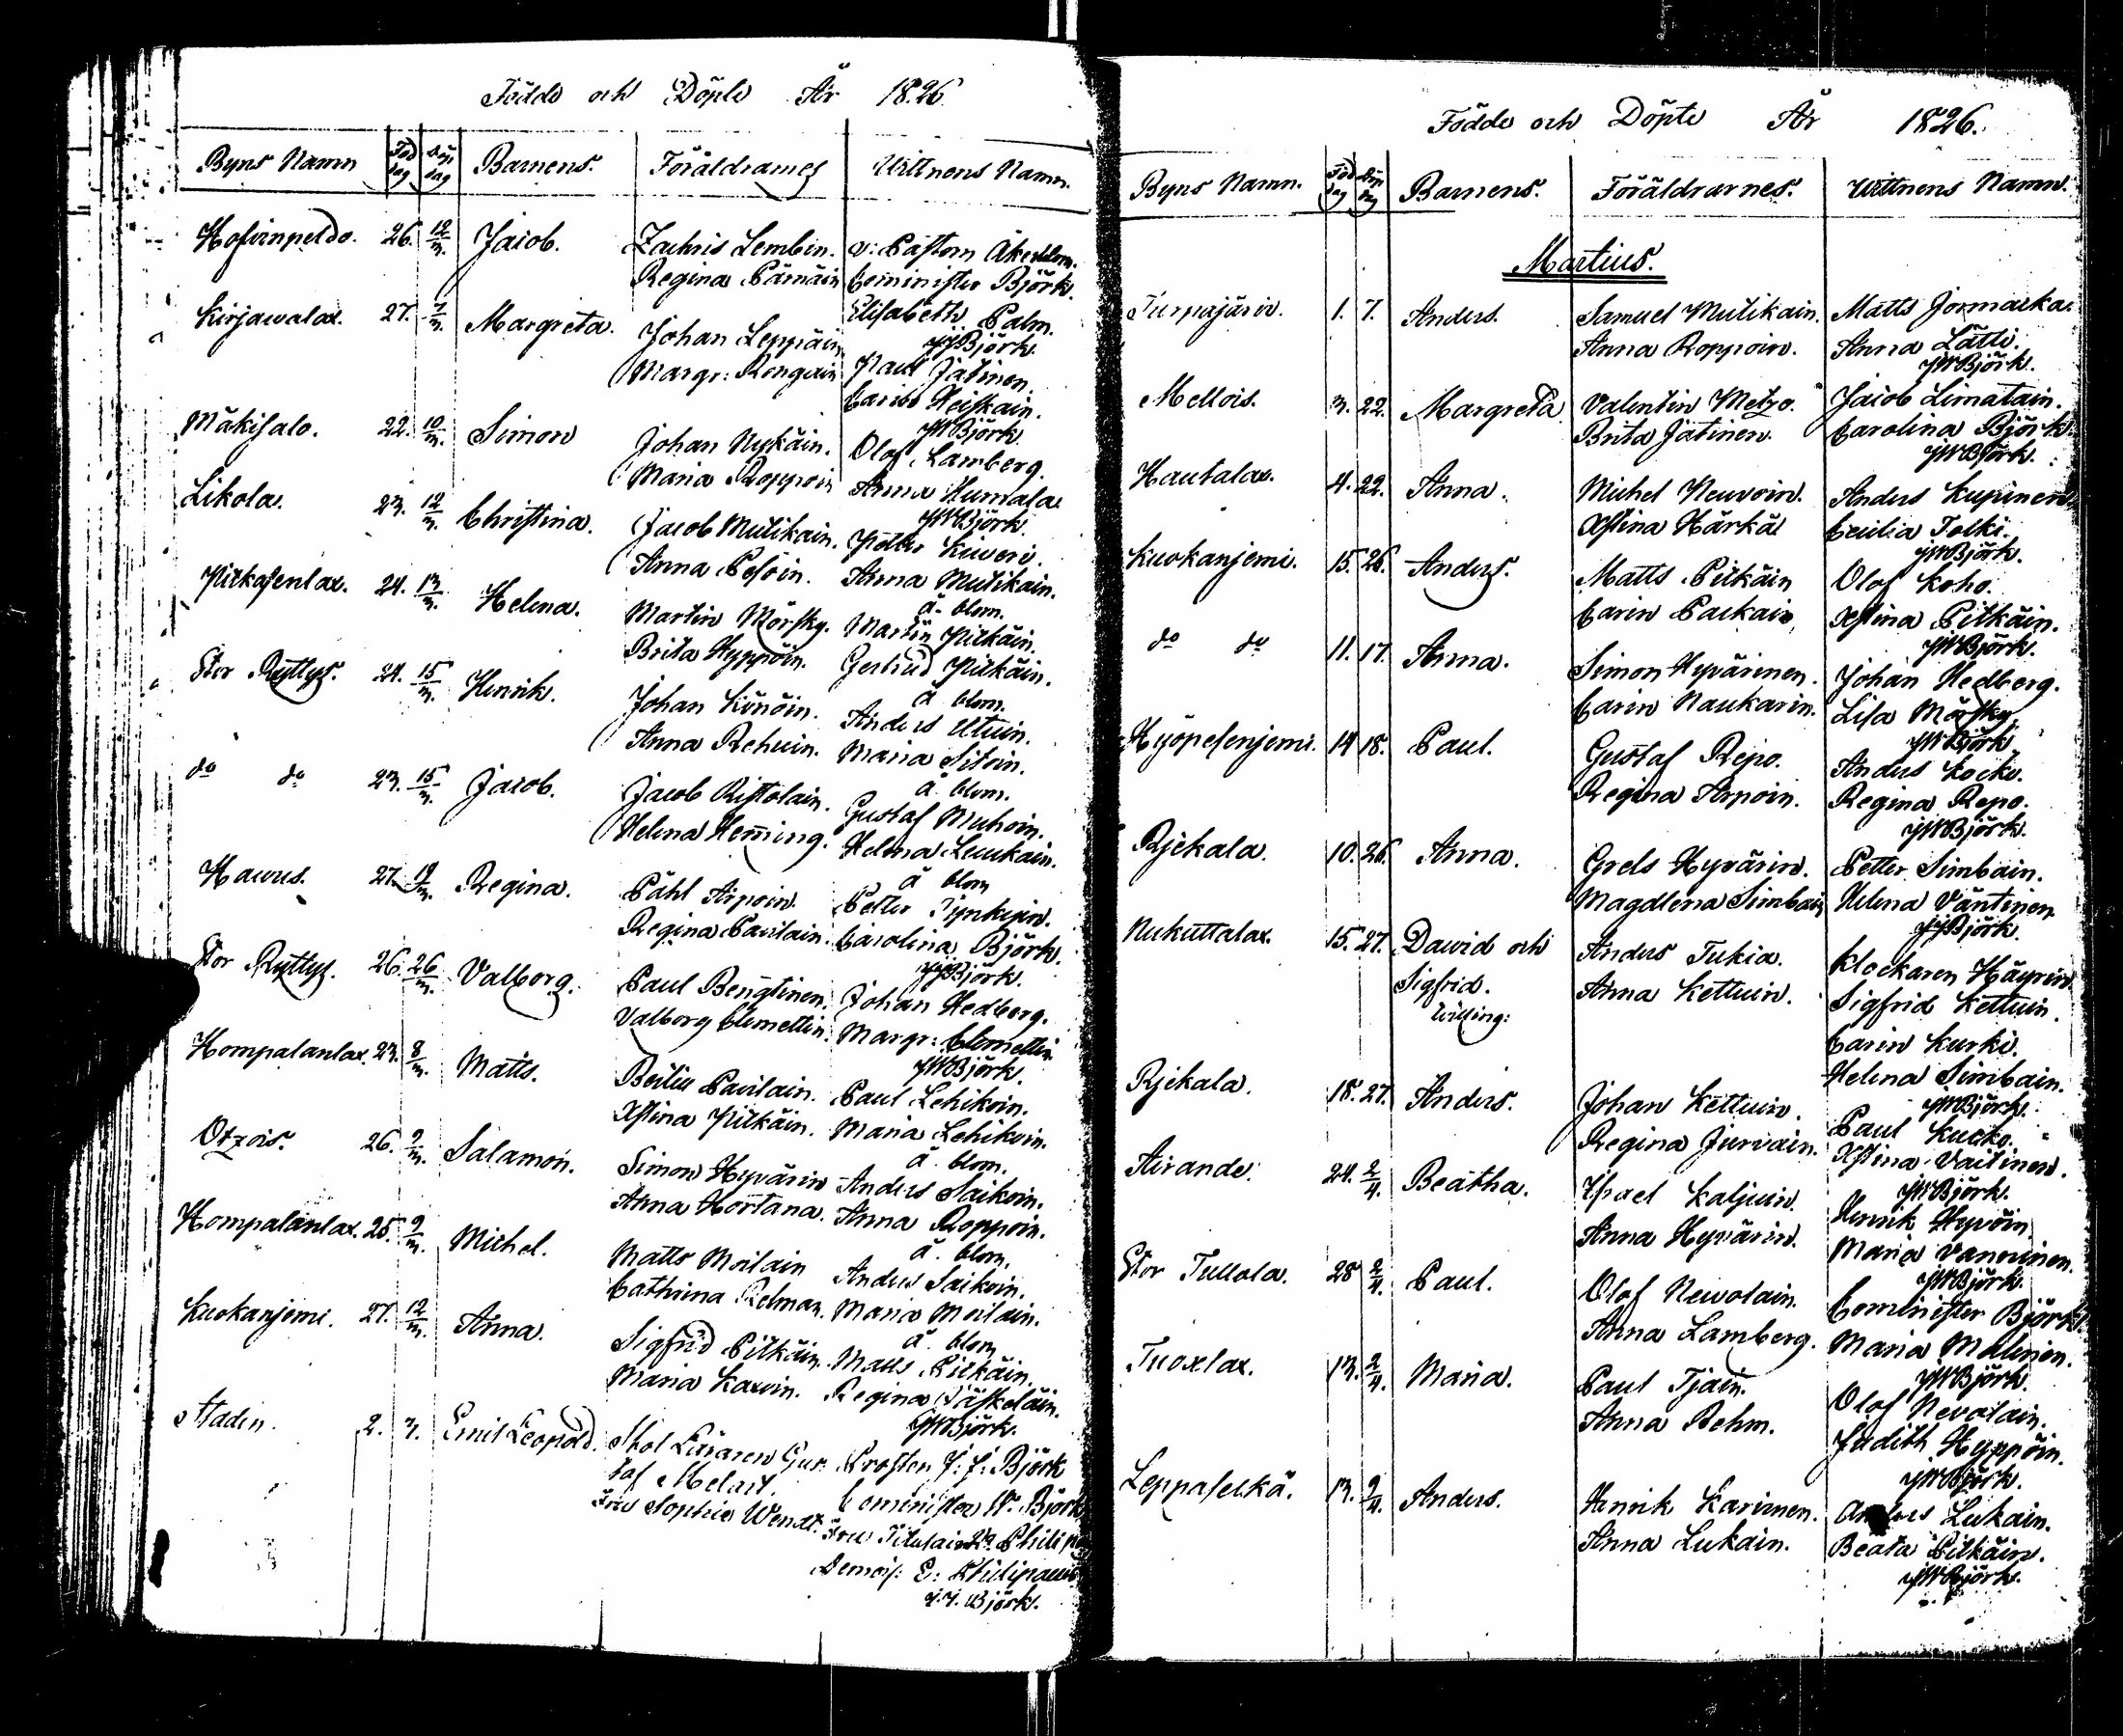 Födde och Döpte År 1826
Byns Namn Föd dag Döp dag Barnens. Föräldrarnes Wittnens Namn.
Hofvinpeldo. 26. 12/3. Jacob. Zachris Lembin. v: Pastorn Åkerblom.
Regina Pärnäin Cominister Björk.
Kirjawalax. 27. 7/3. Margreta. Johan Leppäin Elisabeth Palm.
JJBjörk.
Margr: Rongain Paul Jätinen.
Carin Heiskain.
JWBjörk.
Mäkisalo. 22. 10/3. Simon Johan Nykäin. Olof Lamberg.
Maria Roppoin Anna Humala
JWBjörk.
Likola. 23. 12/3. Christina. Jacob Mutikain. Petter Kiweri.
Anna Pesöin. Anna Mutikain.
å-blom.
Pitkäsenlax. 24. 13/3. Helena. Martin Mörsky. Martin Pitkäin.
Brita Hyppöin. Gertrud Pitkäin.
å blom.
Stor Ryttys. 24. 15/3. Henrik. Johan Kinöin. Anders Utuin.
Anna Rehuin. Maria Sitoin.
å blom.
do do 23. 15/3. Jacob. Jacob Ristolain. Gustaf Muhoin.
Helena Heming. Helena Leukain.
å blom
Haurus. 27. 19/3. Regina. Påhl Arpoin. Petter Pynkijin.
Regina Pavilain. Carolina Björk.
JJBjörk.
Stor Ryttys. 26. 26/3. Valborg. Paul Bengtinen. Johan Hedberg.
Valborg Clemettin. Margr: Clemettin
JWBjörk.
Hompalanlax. 23. 8/3. Matts. Bertill Pavilain. Paul Lehikoin.
Xstina Pitkäin. Maria Lehikoin.
å. blom.
Otzois. 26. 9/3. Salamon. Simon Hyvärin Anders Saikoin.
Anna Hortana. Anna Roppoin.
å. blom.
Hompalanlax. 25. 9/3. Michel. Matts Moilain Anders Saikoin.
Cathrina Relman. Maria Moilain.
å blom
Kuokanjemi. 27. 12/3. Anna. Sigfrid Pitkäin. Matts Pitkäin.
Maria Karvin. Regina Jäskeläin.
JWBjörk.
Staden. 2. 3. Emil Leopold. Skol Läraren Gus- Prosten J: J: Björk
taf Melart. Cominister W. Björk
Fru Sophie Wendt. Fru Titulair Rn. Philip
Demois: E: Philipaeus
J.J. Björk.
Födde och Döpte År 1826.
Byns Namn. Föd dag Döp dag Barnens. Föräldrarnes. Wittnens Namn.
Martius.
Turpajärvi. 1. 7. Anders. Samuel Mutikain. Matts Jormakka.
Anna Roppoin. Anna Lätti.
JWBjörk.
Mellois. 3. 22. Margreta. Valentin Metzo. Jacob Limatain.
Brita Jätinen. Carolina Björk.
JWBjörk.
Hautalax. 4. 22. Anna. Michel Neuvoin. Anders Kupinen
Xstina Härkä Cecilia Tolki.
JWBjörk.
Kuokanjemi. 15. 26. Anders. Matts Pitkäin Olof Koho.
Carin Paikain Xstina Pitkäin.
JWBjörk.
do do 11. 17. Anna. Simon Hyvärinen. Johan Hedberg.
Carin Naukarin. Lisa Mörsky.
JWBjörk
Hyöpesenjemi. 14 18. Paul. Gustaf Repo. Anders Kocko.
Regina Arpoin. Regina Repo.
JWBjörk.
Rjekala. 10. 26. Anna. Grels Hyvärin. Petter Simbain.
Magdlena Simbain Helena Väntinen
JJBjörk.
Nukuttalax. 15. 27. David och Anders Tukia. Klockaren Häyrin
Sigfrid. Anna Kettuin. Sigfrid Kettuin.
Tvilling: Carin Kurki.
Helena Simbain.
JWBjörk.
Rjekala. 18. 27. Anders. Johan Kettuin. Paul Kucko.
Regina Jurvain. Xstina Vaitinen.
JWBjörk.
Airande. 24. 2/4. Beatha. Israel Kaljuin. Henrik Hyvöin
Anna Hyvärin. Maria Vanninen.
JWBjörk.
Stor Tullola. 28 2/4. Paul. Olof Nevolain. Cominister Björk.
Anna Lamberg. Maria Malinen.
JWBjörk.
Tuoxlax. 13. 2/4. Maria. Paul Tjäin. Olof Nevolain.
Anna Rehm. Judith Hyppöin.
JWBjörk.
Leppäselkä. 13. 9/4. Anders. Henrik Karinen. Anders Lukain.
Anna Lukain. Beata Pitkäin.
JWBjörk.